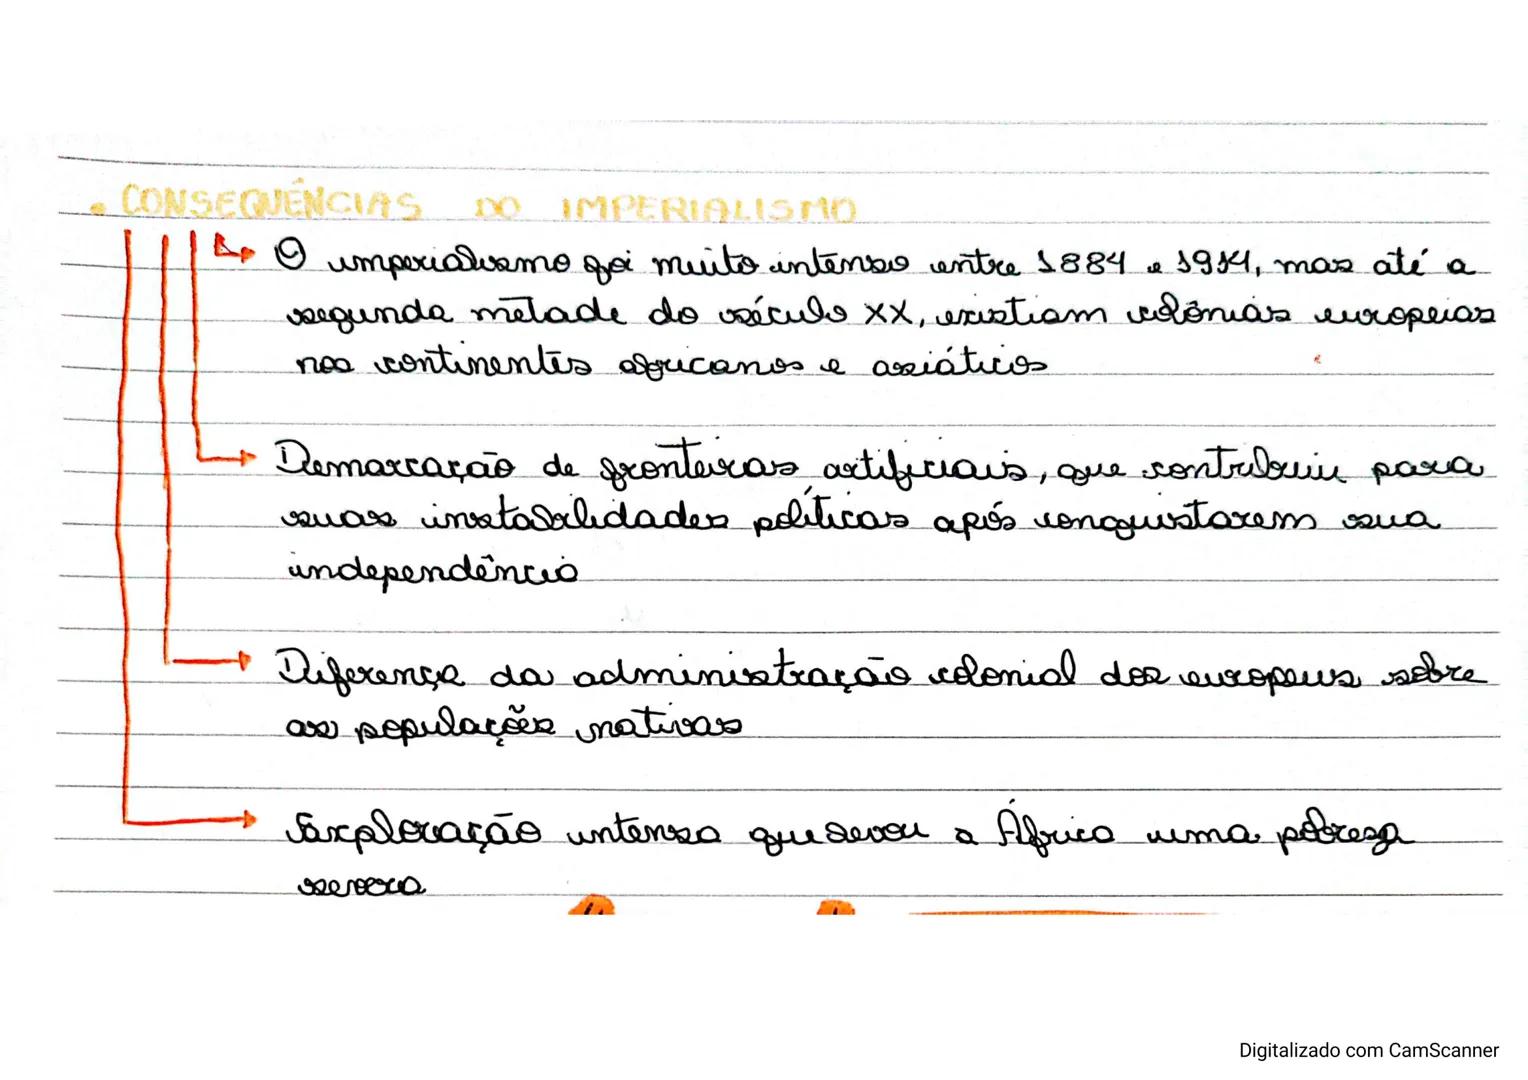 • CONSEQUÊNCIAS DO IMPERIALISMO
O imperialismo foi muito intenso entre 1884 e 1914, mas até a
segunda metade do século XX, existiam colônias europeias
nos continentes africanos e asiáticos
Demarcação de fronteiras artificiais, que contribuiu para
suas instabilidades políticas após conquistarem sua
independência
Diferença da administração colonial dos europeus sobre
as populações nativas
Exploração intensa que levou a África uma pobreza
severa
Digitalizado com CamScanner